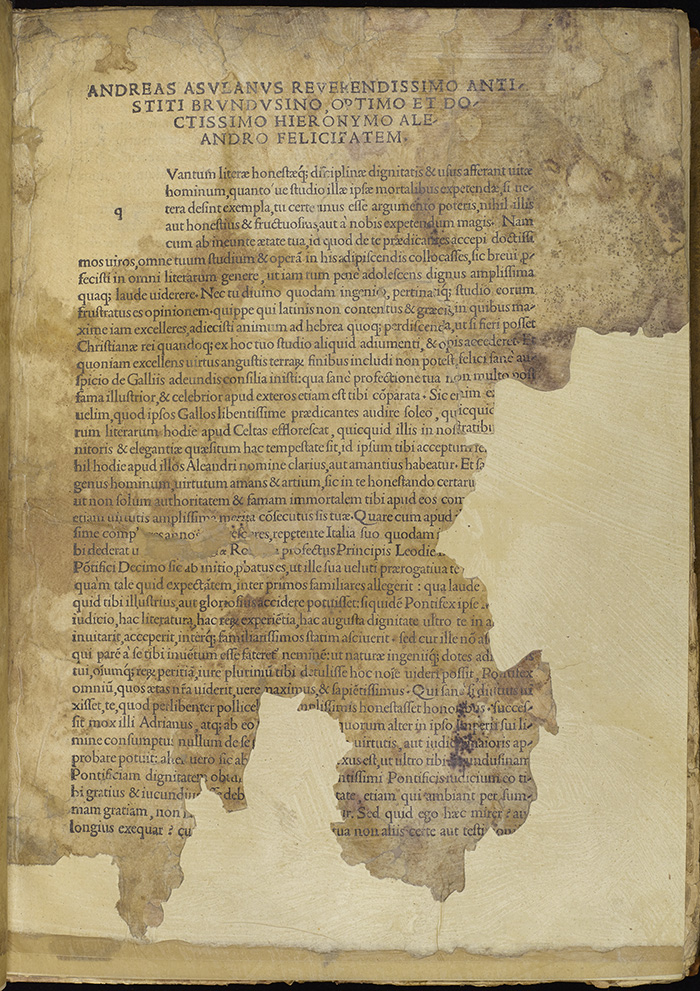 ANDREAS ASVLANVS REVERENDISSIMO ANTI-
STITI BRVNDVSINO, OPTIMO ET DO-
CTISSIMO HIERONYMO ALE-
ANDRO FELICITATEM.
q
Vantum literæ honestæq; disciplinæ dignitatis & usus afferant uitæ
hominum, quanto´ue studio illæ ipsæ mortalibus expetendæ, si ne-
tera desint exempla, tu certe unus esse argumento poteris, nihil illis
aut honestius & fructuosius, aut à nobis expetendum magis. Nam
cum ab ineunte ætate tua, id quod de te prædicantes accepi doctissi
mos uiros, omne tuum studium & operã in his adipiscendis collocasses, sic breui ꝓ-
fecisti in omni literatum genere, ut iam tum penè adolescens dignus amplissima
quaq; laude uiderere. Nec tu diuino quodam ingenio, pertinatiq; studio eorum
frustratus es opinionem. quippe qui latinis non contentus & græcis, in quibus ma-
xime iam excelleres, adiecisti animum ad hebrea quoq; perdiscenda, ut si fieri posset
Christianæ rei quandoq; ex hoc tuo studio aliquid adiumenti, & opis accederet. Et
quoniam excellens uirtus angustis terraꝝ finibus includi non potest, felici sanè au-
spicio de Galliis adeundis consilia inisti: qua sanè profectione tua non multo post
fama illustrior, & celebrior apud exteros etiam est tibi cõparata. Sic enim
uelim, quod ipsos Gallos libentissime prædicantes audire soleo, quicquid
rum literarum hodie apud Celtas efflorescat, quicquid illis in nostratibu
nitoris & elegantiæ quæsitum hac tempestate sit, id ipsum tibi acceptum
hil hodie apud illos Aleandri nomine clarius, aut amantius habeatur. Et
genus hominum, uirtutum amans & artium, sic in te honestando certaru
ut non solum authoritatem & famam immortalem tibi apud eos com
etiam uirtutis amplissima merita cõsecutus sis tuæ. Quare cum apud
sime comp repetente Italia suo quodam
bi dederat profectus Principis Leodie
Põtifici Decimo sic ab initio, ꝓbatus es, ut ille sua ueluti prærogatiua te
quàm tale quid expectãtem, inter primos familiares allegerit: qua laude
quid tibi illustrius, aut gloriosius accidere potuisset: siquidē Pontifex ipse
iudicio, hac literatura, hac reꝝ experiētia, hac augusta dignitate ultro te in
inuitarit, acceperit, interq; familiarissimos statim asciuerit. sed cur ille nõ
qui parē à se tibi inuētum esse fateret neminē: ut naturæ ingeniiq; dotes
tui, oīumq; reꝝ peritiã, iure plurimū tibi detulisse hoc noīe uideri possit, Pontifex
omniū, quos ætas nr̃a uiderit, uere maximus, & sapiētissimus. Qui sane si diutius
xisset, te, quod perlibenter pollice mplissimis honestasset honoribus. Succes-
sit mox illi Adrianus, atq; ab eo quorum alter in ipso imperii sui li-
mine consumptus nullum de se uirtutis, aut iudi maioris ap-
probare potuit: alter uero sic ab xus est, ut ultro tibi undusinam
Pontificiam dignitatem ntissimi Pontificis iudicium eo ti-
bi gratius & iucundi deb tate, etiam qui ambiant per sum-
mam gratiam, non Sed quid ego hæc miror? au
longius exequar? cu ua non aliis certe aut testi